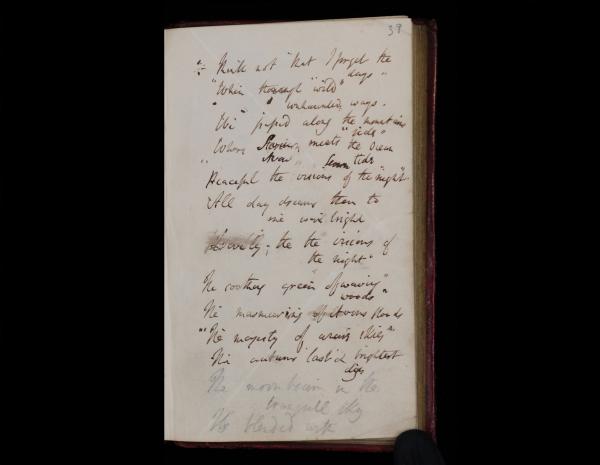 39
Think not that I forget the
days"
"When through "wild"
unhaunted, ways.
We piped along the mountain
"side"
Where meets the Ocean
tide
Peaceful the visions of the "night"
All day dreams then to
me were bright
the the visions of
the night"
The soothing green "of waving"
woods"
The murmuring of floods
"The majesty of skies"
The autumns last & brightest
dyes
The moonbeam in the
tranquil sky
The blended with